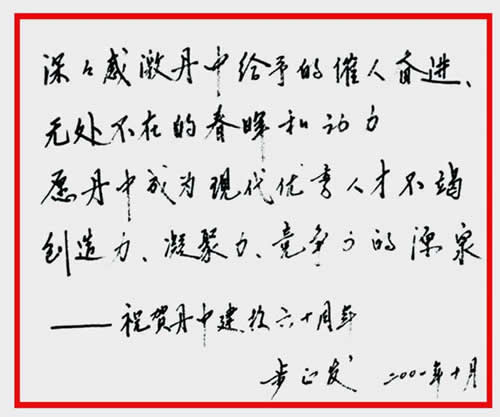 深々感激丹中给予的催人奋进、
无处不在的春晖和动力
愿丹中成为现代优秀人才不竭
创造力、凝聚力、竞争力的源泉
——祝贺丹中建校六十周年
步正发 二〇〇一年十月